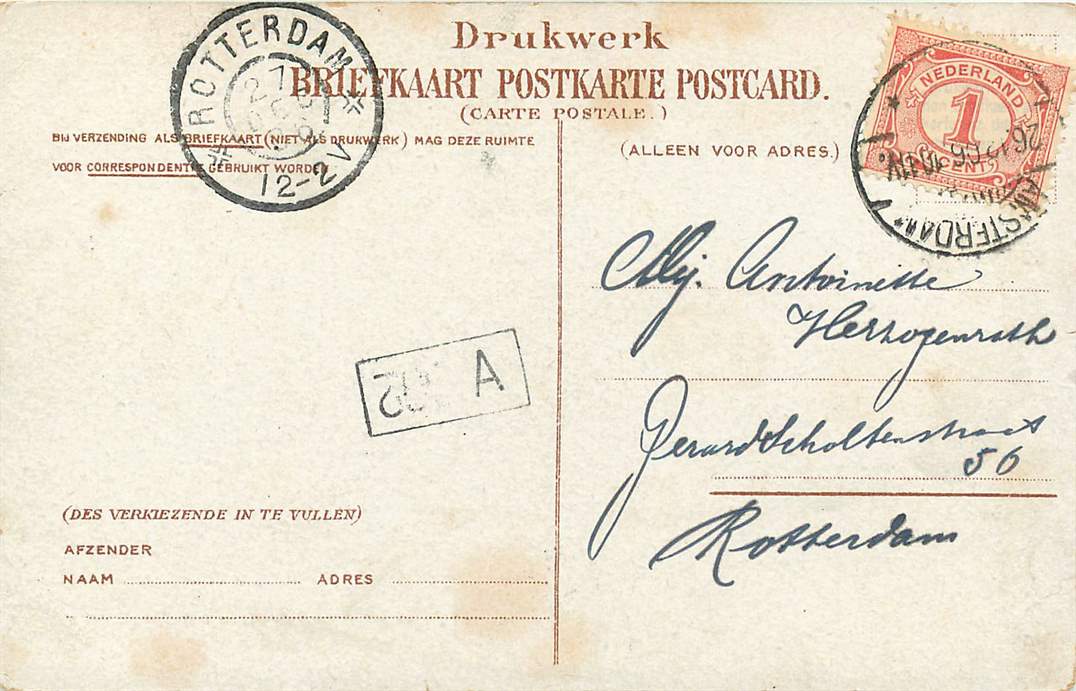 Drukwerk
BRIEFKAART POSTKARTE POSTCARD.
(CARTE POSTALE.)
BIJ VERZENDING ALS BRIEFKAART (NIET ALS DRUKWERK) MAG DEZE RUIMTE
VOOR CORRESPONDENTIE GEBRUIKT WORDEN.
(ALLEEN VOOR ADRES.)
ROTTERDAM
27
DEC
06
12-2V
NEDERLAND
1
CENT
AMSTERDAM
26.12.06
Mej. Antoinette
Herzogenrath
Gerard Scholtenstraat
56
Rotterdam
A
(DES VERKIEZENDE IN TE VULLEN)
AFZENDER
NAAM ADRES